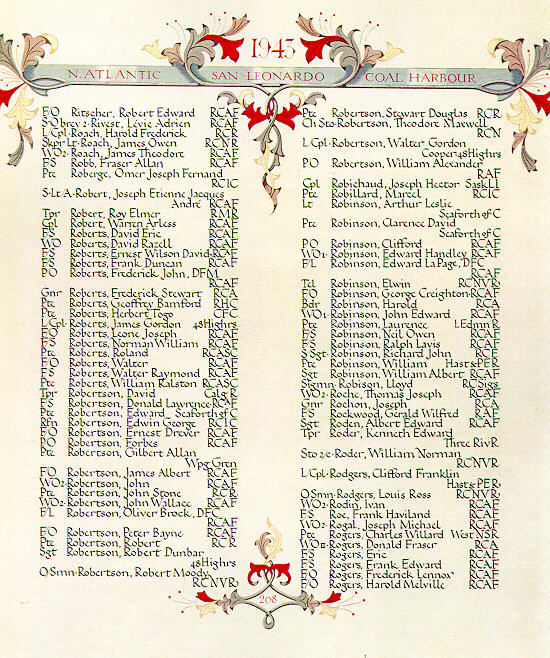 1943
N. ATLANTIC SAN LEONARDO COAL HARBOUR
F/O Ritscher, Robert Edward RCAF
S-O brev 2-Rivest, Lévie Adrien RCAF
L Cpl-Roach, Harold Frederick RCR
Skpr Lt-Roach, James Owen RCNR
WO2-Roach, James Theodore RCAF
FS Robb, Fraser Allan RCAF
Pte Roberge, Omer Joseph Fernand
RCIC
S-Lt A-Robert, Joseph Etienne Jacques
André RCAF
Tpr Robert, Roy Elmer RMR
Cpl Robert, Warren Arless RCAF
FS Roberts, David Eric RCAF
WO Roberts, David Razell RCAF
FS Roberts, Ernest Wilson David RCAF
FS Roberts, Frank Duncan RCAF
PO Roberts, Frederick John, DFM
RCAF
Gnr Roberts, Frederick Stewart RCA
Pte Roberts, Geoffrey Bamford RHC
Pte Roberts, Herbert Togo CFC
L Cpl-Roberts, James Gordon 48Highrs
F/O Roberts, Leone Joseph RCAF
FS Roberts, Norman William RCAF
Pte Roberts, Roland RCASC
F/O Roberts, Walter RCAF
FS Roberts, Walter Raymond RCAF
Pte Roberts, William Ralston RCASC
Tpr Robertson, David Calg R
FS Robertson, Donald Lawrence RCAF
Pte Robertson, Edward Seaforth of C
Rfn Robertson, Edwin George RCIC
F/O Robertson, Ernest Drever RCAF
PO Robertson, Forbes RCAF
Pte Robertson, Gilbert Allan
Wpg Gren
F/O Robertson, James Albert RCAF
WO2-Robertson, John RCAF
Pte Robertson, John Stone RCR
WO2-Robertson, John Wallace RCAF
F/L Robertson, Oliver Brock, DFC
RCAF
F/O Robertson, Peter Bayne RCAF
Pte Robertson, Robert RCR
Sgt Robertson, Robert Dunbar
48Highrs
O Smn-Robertson, Robert Moody
RCNVR
Pte Robertson, Stewart Douglas RCR
Ch Sto-Robertson, Theodore Maxwell
RCN
L Cpl-Robertson, Walter Gordon
Cooper-48Highrs
PO Robertson, William Alexander
RAF
Cpl Robichaud, Joseph Hector Sask L I
Pte Robillard, Marcel RCIC
Lt Robinson, Arthur Leslie
Seaforth of C
Pte Robinson, Clarence David
Seaforth of C
PO Robinson, Clifford RCAF
WO1-Robinson, Edward Handley RCAF
F/L Robinson, Edward La Page, DFC
RCAF
Tel Robinson, Elwin RCNVR
FO Robinson, George Creighton RCAF
Bdr Robinson, Harold RCA
WO1-Robinson, John Edward RCAF
Pte Robinson, Laurence L Edmn R
FS Robinson, Neil Owen RCAF
FS Robinson, Ralph Lavis RCAF
S Sgt-Robinson, Richard John RCE
Pte Robinson, William Hast & PER
Sgt Robinson, William Albert RCAF
Sigmn-Robison, Lloyd RC Sigs
WO2-Roche, Thomas Joseph RCAF
Gnr Rochon, Joseph RCA
FS Rockwood, Gerald Wilfred RAF
Sgt Roden, Albert Edward RCAF
Tpr Roder, Kenneth Edward
Three Riv R
Sto 2/c-Roder, William Norman
RCNVR
L/Cpl-Rodgers, Clifford Franklin
Hast & PER
O Smn-Rodgers, Louis Ross RCNVR
WO2-Rodin, Ivan RCAF
FS Roe, Frank Haviland RCAF
WO2-Rogal, Joseph Michael RCAF
Pte Rogers, Charles Willard West NSR
WO II-Rogers, Donald Fraser RCA
FS Rogers, Eric RCAF
FS Rogers, Frank Edward RCAF
F/O Rogers, Frederick Lennox RCAF
F/O Rogers, Harold Melville RCAF
208